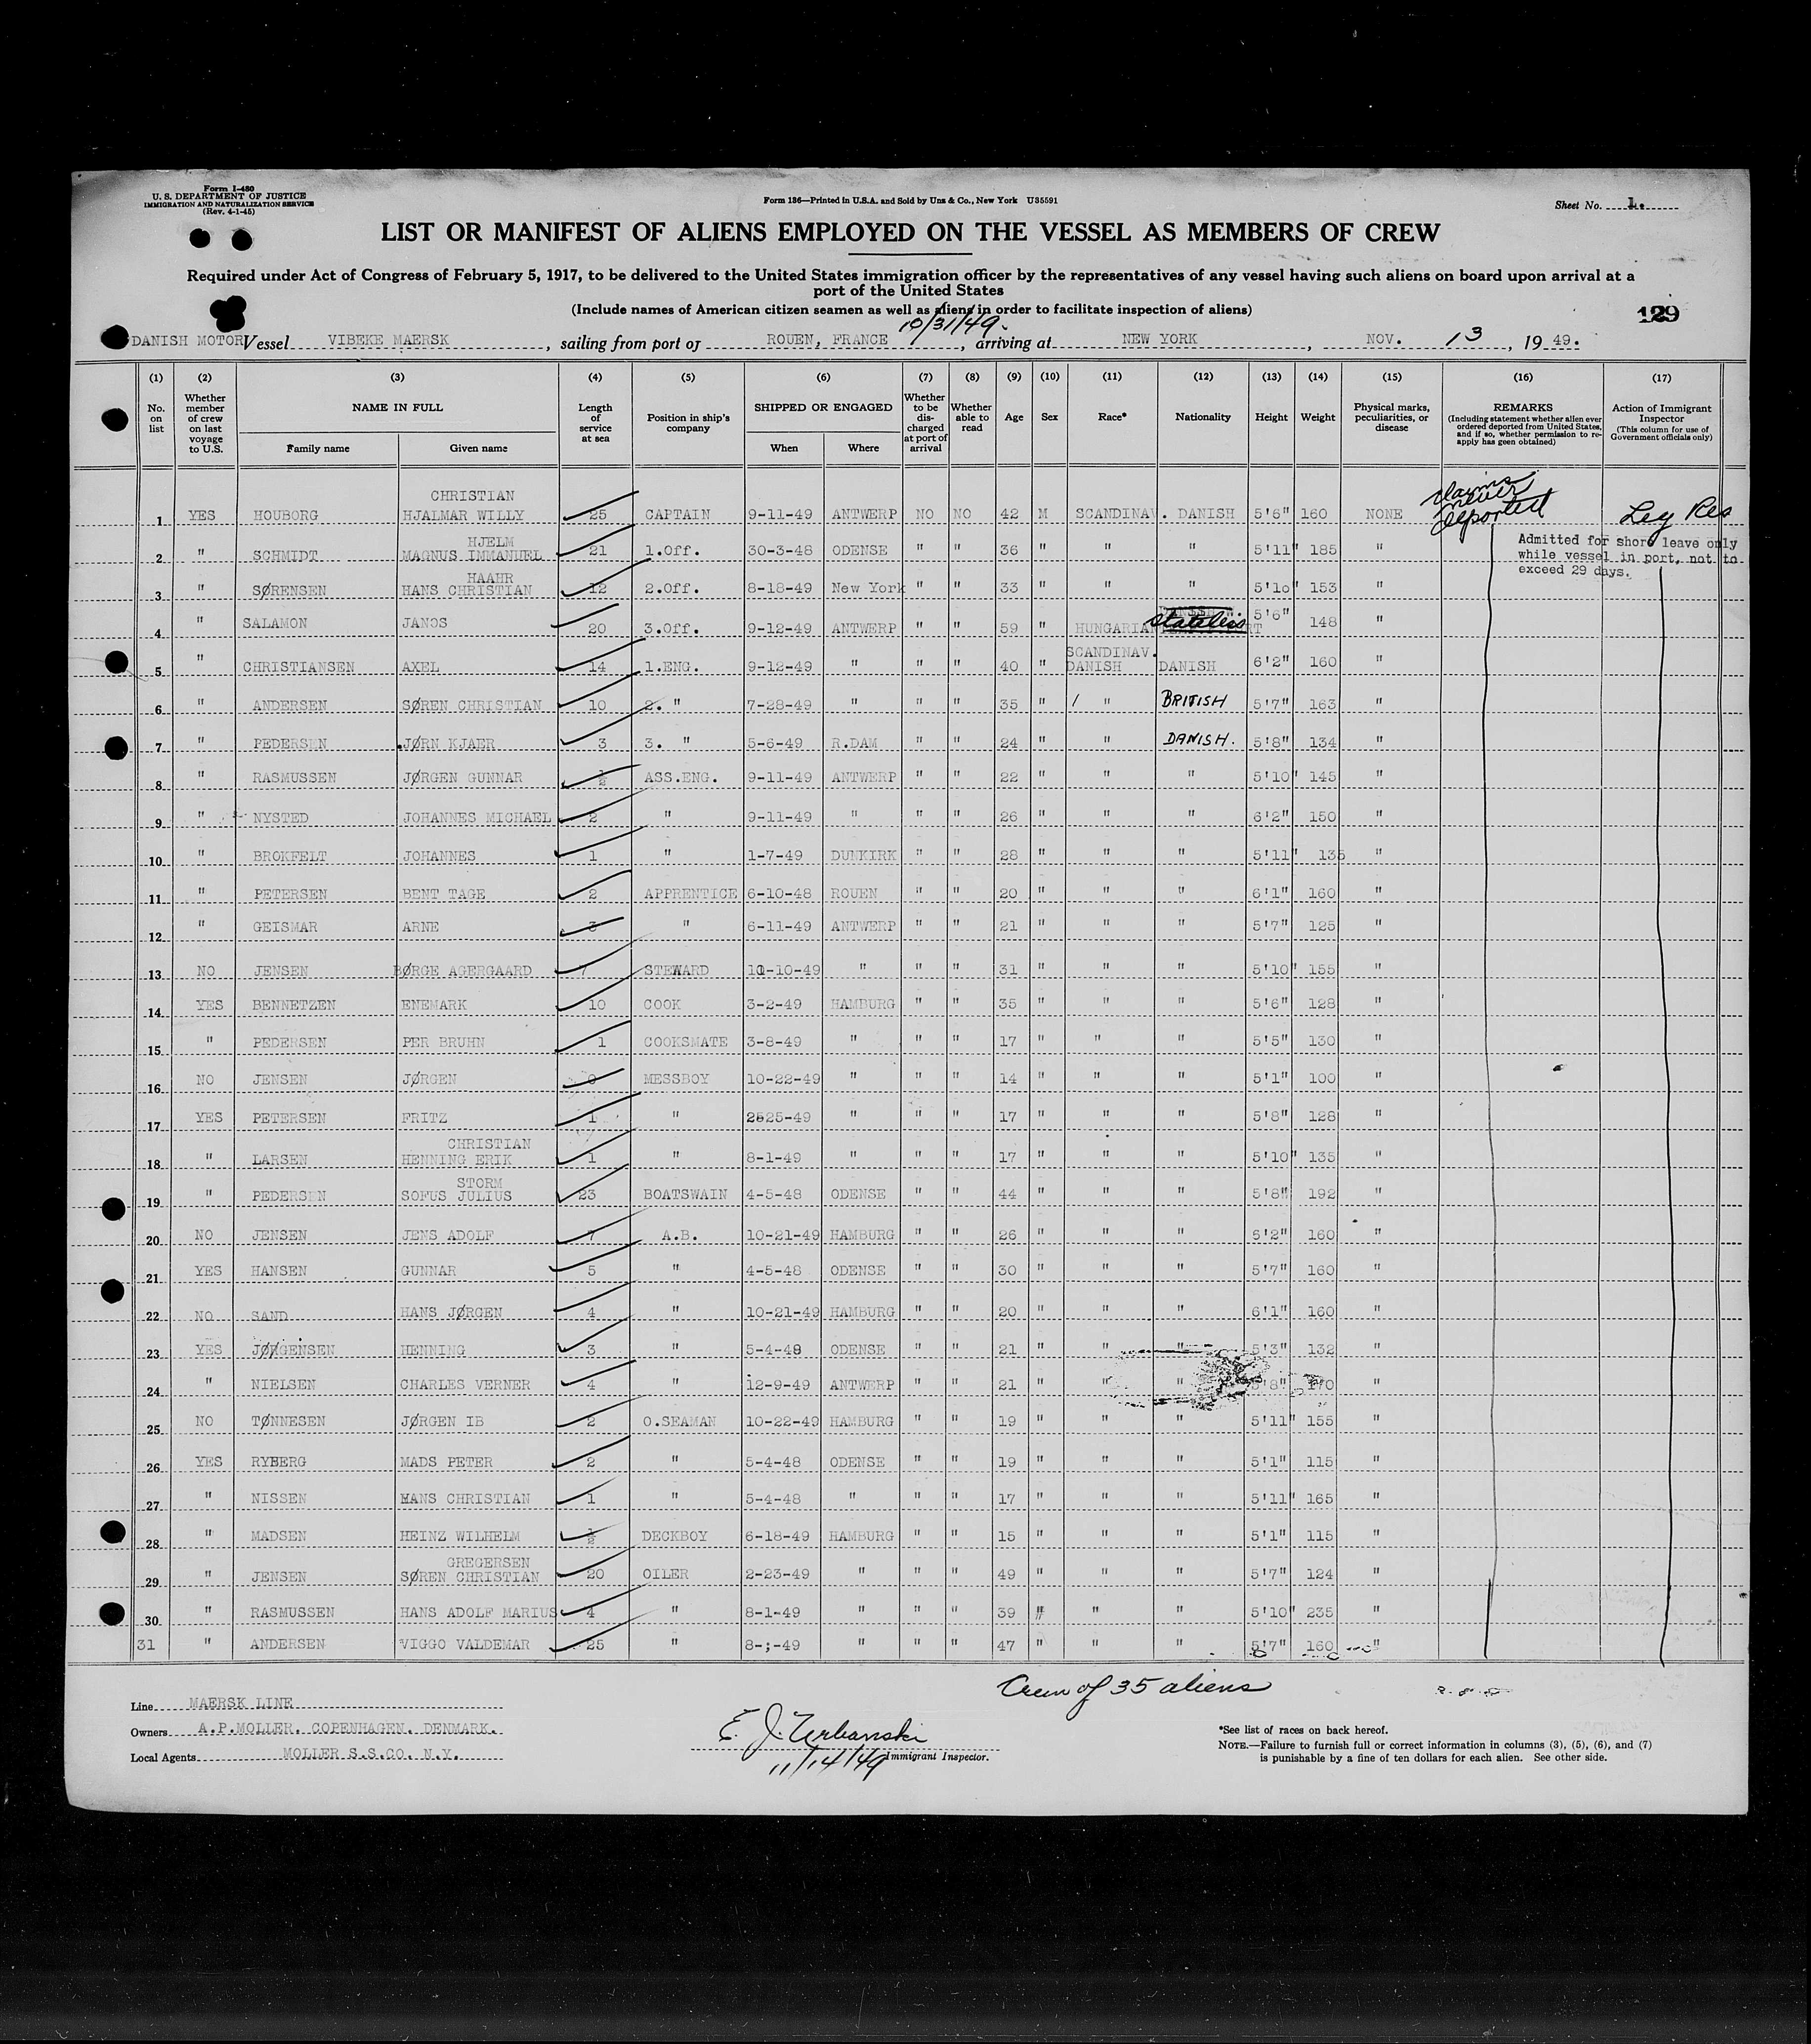 Form I-480
U. S. DEPARTMENT OF JUSTICE
IMMIGRATION AND NATURALIZATION SERVICE
(Rev. 4-1-45)
Form 136—Printed in U.S.A. and Sold by Unz & Co., New York U35591
Sheet No. 1.
LIST OR MANIFEST OF ALIENS EMPLOYED ON THE VESSEL AS MEMBERS OF CREW
Required under Act of Congress of February 5, 1917, to be delivered to the United States immigration officer by the representatives of any vessel having such aliens on board upon arrival at a
port of the United States
(Include names of American citizen seamen as well as aliens in order to facilitate inspection of aliens)
129
10/31/49.
DANISH MOTOR Vessel VIBEKE MAERSK, sailing from port of ROUEN, FRANCE, arriving at NEW YORK, NOV. 13, 1949.
(1) (2) (3) (4) (5) (6) (7) (8) (9) (10) (11) (12) (13) (14) (15) (16) (17)
No. on list
Whether member of crew on last voyage to U.S.
NAME IN FULL
Family name Given name
Length of service at sea
Position in ship's company
SHIPPED OR ENGAGED
When Where
Whether to be discharged at port of arrival
Whether able to read
Age Sex Race* Nationality Height Weight
Physical marks, peculiarities, or disease
REMARKS
(Including statement whether alien ever ordered deported from United States, and if so, whether permission to re-apply has geen obtained)
Action of Immigrant Inspector
(This column for use of Government officials only)
CHRISTIAN
1 YES HOUBORG HJALMAR WILLY 25 CAPTAIN 9-11-49 ANTWERP NO NO 42 M SCANDINAV. DANISH 5'6" 160 NONE claims never deported Leg Res
Admitted for short leave only
while vessel in port, not to
exceed 29 days.
HJELM
2 " SCHMIDT MAGNUS IMMANUEL 21 1.Off. 30-3-48 ODENSE " " 36 " " " 5'11" 185 "
HAAHR
3 " SØRENSEN HANS CHRISTIAN 12 2.Off. 8-18-49 New York " " 33 " " " 5'10" 153 "
4 " SALAMON JANOS 20 3.Off. 9-12-49 ANTWERP " " 59 " HUNGARIAN stateless 5'6" 148 "
SCANDINAV.
5 " CHRISTIANSEN AXEL 14 1.ENG. 9-12-49 " " " 40 " DANISH DANISH 6'2" 160 "
6 " ANDERSEN SØREN CHRISTIAN 10 2. " 7-28-49 " " " 35 " " BRITISH 5'7" 163 "
7 " PEDERSEN JØRN KJAER 3 3. " 5-6-49 R.DAM " " 24 " " DANISH. 5'8" 134 "
8 " RASMUSSEN JØRGEN GUNNAR ½ ASS.ENG. 9-11-49 ANTWERP " " 22 " " " 5'10" 145 "
9 " NYSTED JOHANNES MICHAEL 2 " 9-11-49 " " " 26 " " " 6'2" 150 "
10 " BROKFELT JOHANNES 1 " 1-7-49 DUNKIRK " " 28 " " " 5'11" 135 "
11 " PETERSEN BENT TAGE 2 APPRENTICE 6-10-48 ROUEN " " 20 " " " 6'1" 160 "
12 " GEISMAR ARNE 3 " 6-11-49 ANTWERP " " 21 " " " 5'7" 125 "
13 NO JENSEN BØRGE AGERGAARD 7 STEWARD 10-10-49 " " " 31 " " " 5'10" 155 "
14 YES BENNETZEN ENEMARK 10 COOK 3-2-49 HAMBURG " " 35 " " " 5'6" 128 "
15 " PEDERSEN PER BRUHN 1 COOKSMATE 3-8-49 " " " 17 " " " 5'5" 130 "
16 NO JENSEN JØRGEN 0 MESSBOY 10-22-49 " " " 14 " " " 5'1" 100 "
17 YES PETERSEN FRITZ 1 " 2525-49 " " " 17 " " " 5'8" 128 "
CHRISTIAN
18 " LARSEN HENNING ERIK 1 " 8-1-49 " " " 17 " " " 5'10" 135 "
STORM
19 " PEDERSEN SOFUS JULIUS 23 BOATSWAIN 4-5-48 ODENSE " " 44 " " " 5'8" 192 "
20 NO JENSEN JENS ADOLF 7 A.B. 10-21-49 HAMBURG " " 26 " " " 6'2" 160 "
21 YES HANSEN GUNNAR 5 " 4-5-48 ODENSE " " 30 " " " 5'7" 160 "
22 NO SAND HANS JØRGEN 4 " 10-21-49 HAMBURG " " 20 " " " 6'1" 160 "
23 YES JØRGENSEN HENNING 3 " 5-4-48 ODENSE " " 21 " " " 5'3" 132 "
24 " NIELSEN CHARLES VERNER 4 " 12-9-49 ANTWERP " " 21 " " " 5'8" 170 "
25 NO TØNNESEN JØRGEN IB 2 O.SEAMAN 10-22-49 HAMBURG " " 19 " " " 5'11" 155 "
26 YES RYBERG MADS PETER 2 " 5-4-48 ODENSE " " 19 " " " 5'1" 115 "
27 " NISSEN HANS CHRISTIAN 1 " 5-4-48 " " " 17 " " " 5'11" 165 "
28 " MADSEN HEINZ WILHELM ½ DECKBOY 6-18-49 HAMBURG " " 15 " " " 5'1" 115 "
GREGERSEN
29 " JENSEN SØREN CHRISTIAN 20 OILER 2-23-49 " " " 49 " " " 5'7" 124 "
30 " RASMUSSEN HANS ADOLF MARIUS 4 " 8-1-49 " " " 39 " " " 5'10" 235 "
31 " ANDERSEN VIGGO VALDEMAR 25 " 8-;-49 " " " 47 " " " 5'7" 160 "
Crew of 35 aliens
Line MAERSK LINE
Owners A.P.MOLLER. COPENHAGEN. DENMARK.
Local Agents MOLLER S.S.CO. N.Y.
E. J. Urbanski
11/14/49 Immigrant Inspector.
*See list of races on back hereof.
NOTE.—Failure to furnish full or correct information in columns (3), (5), (6), and (7)
is punishable by a fine of ten dollars for each alien. See other side.